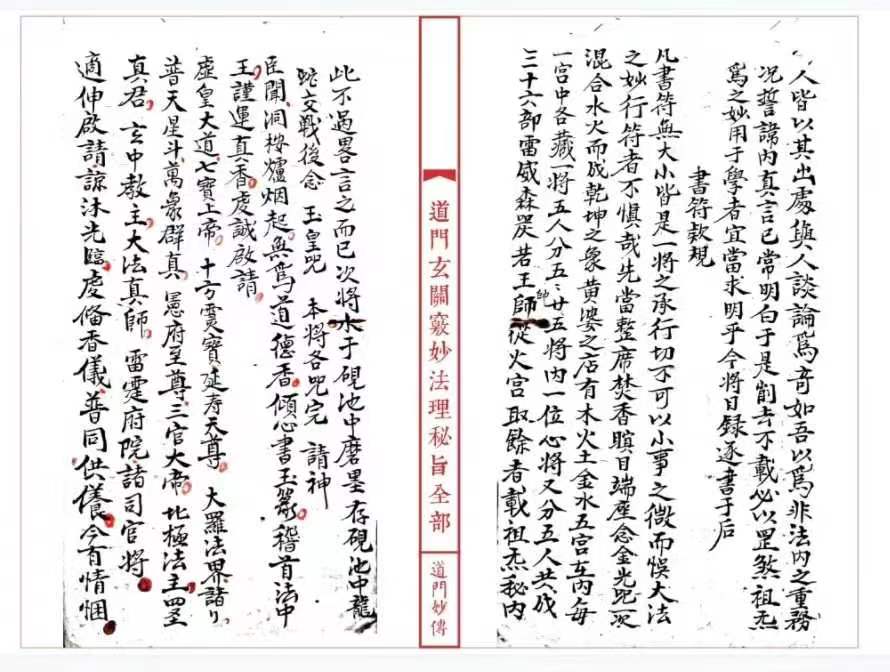 人皆以其出處與人談論為奇如吾以為非法內之重務
況誓諱內真言已常明白于是削去不載必以罡煞祖炁
為之妙用于學者宜當求明乎今將目錄逐書于后
書符欵規
凡書符無大小皆是一將之承行切不可以小事之微而悞大法
之妙行符者不慎哉先當整席焚香瞑目端座念金光咒一次
混合水火而成乾坤之象黃婆之店有木火土金水五宮在內每
一宮中各藏一將五人分五五廿五將內一位心將又分五人共成
三十六部雷威森罡若王師從火宮取餘者載祖炁秘內
帥
道門玄關竅妙法理秘旨全部
道門妙傳
此不過畧言之而已次將水于硯池中磨墨存硯池中龍
蛇交戰後念 玉皇咒 本將各咒完 請神
臣聞洞按爐烟起無為道德香傾心書玉篆稽首法中
王謹運真香虔誠啟請
虛皇大道七寶上帝 十方靈寶延寿天尊 大羅法界諸
普天星斗萬象群真 憲府至尊三官大帝 北極法主四聖
真君 玄中教主大法真師 雷霆府院諸司官將
適伸啟請諒沐光臨虔俻香儀普同供養今有情悃